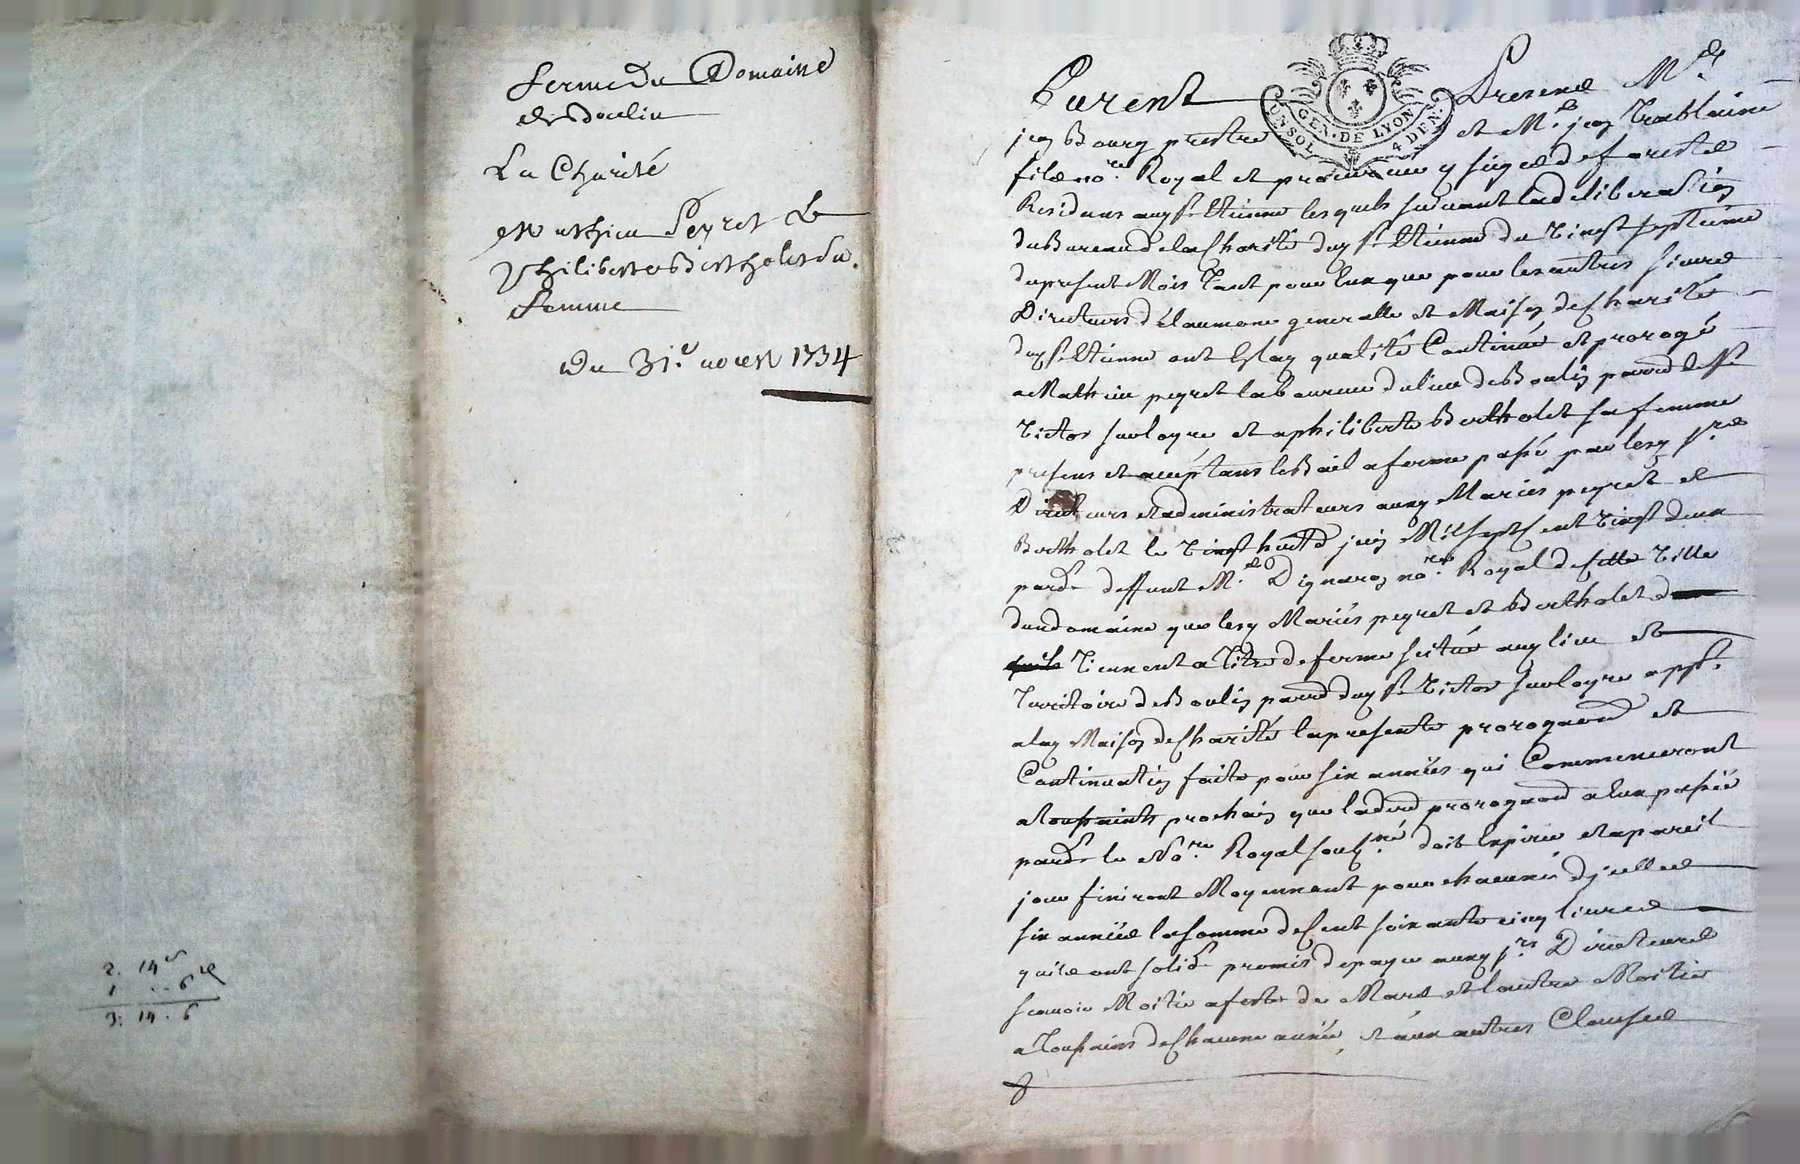 ferme du Domaine
de Boulin
La Charité
Mathieu Peyret &
philiberte Bertholet sa
femme
du 31.e aoust 1734
2. 14 s
1 .. 6 d
3. 14 . 6
GEN. DE LYON
UN SOL 4 DEN.
Furent Presens Mre
jean Bourg prestre et Me jean Trablaine
fils no.re Royal et procureur sieges de forests
Residans aud St Etienne lesquels suivant la deliberation
du Bureau de la Charité dud St Etienne du vingt septieme
du present Mois tant pour eux que pour les autres sieurs
Directeurs de l'aumone generalle et Maison de Charité
dud St Etienne ont Esd qualité Continué et prorogé
a Mathieu peyret laboureur du lieu de Boulin parr de St
Victor sur loyre et a philiberte Bertholet sa femme
presens et acceptans le Bail a ferme passé par lesd srs
Directeurs et administrateurs auxd Mariés peyret et
Bertholet le vingt huit juin Mil sept cent vingt deux
pard deffunt Me no.re Royal de cette ville
du domaine que lesd Mariés peyret et Bertholet
tiennent a titre de ferme scitué aud lieu et
Territoire de Boulin parr dud St Victor sur loyre app.t
a lad Maison de Charité la presente prorogaon et
Continuation faite pour six années qui Commenceront
a Toussaints prochain que lad prorogaon a eux passée
pard le No.re Royal sousné doit Expirer et a pareil
jour finiront Moyennant pour chacune d'jcelles
six années la somme de Cent soixante cinq livres
qu'ils ont solid promis de payer auxd srs Directeurs
scavoir Moitié a feste de Mars et l'autre Moitié
a Toussains de Chacune année, et aux autres Clauses